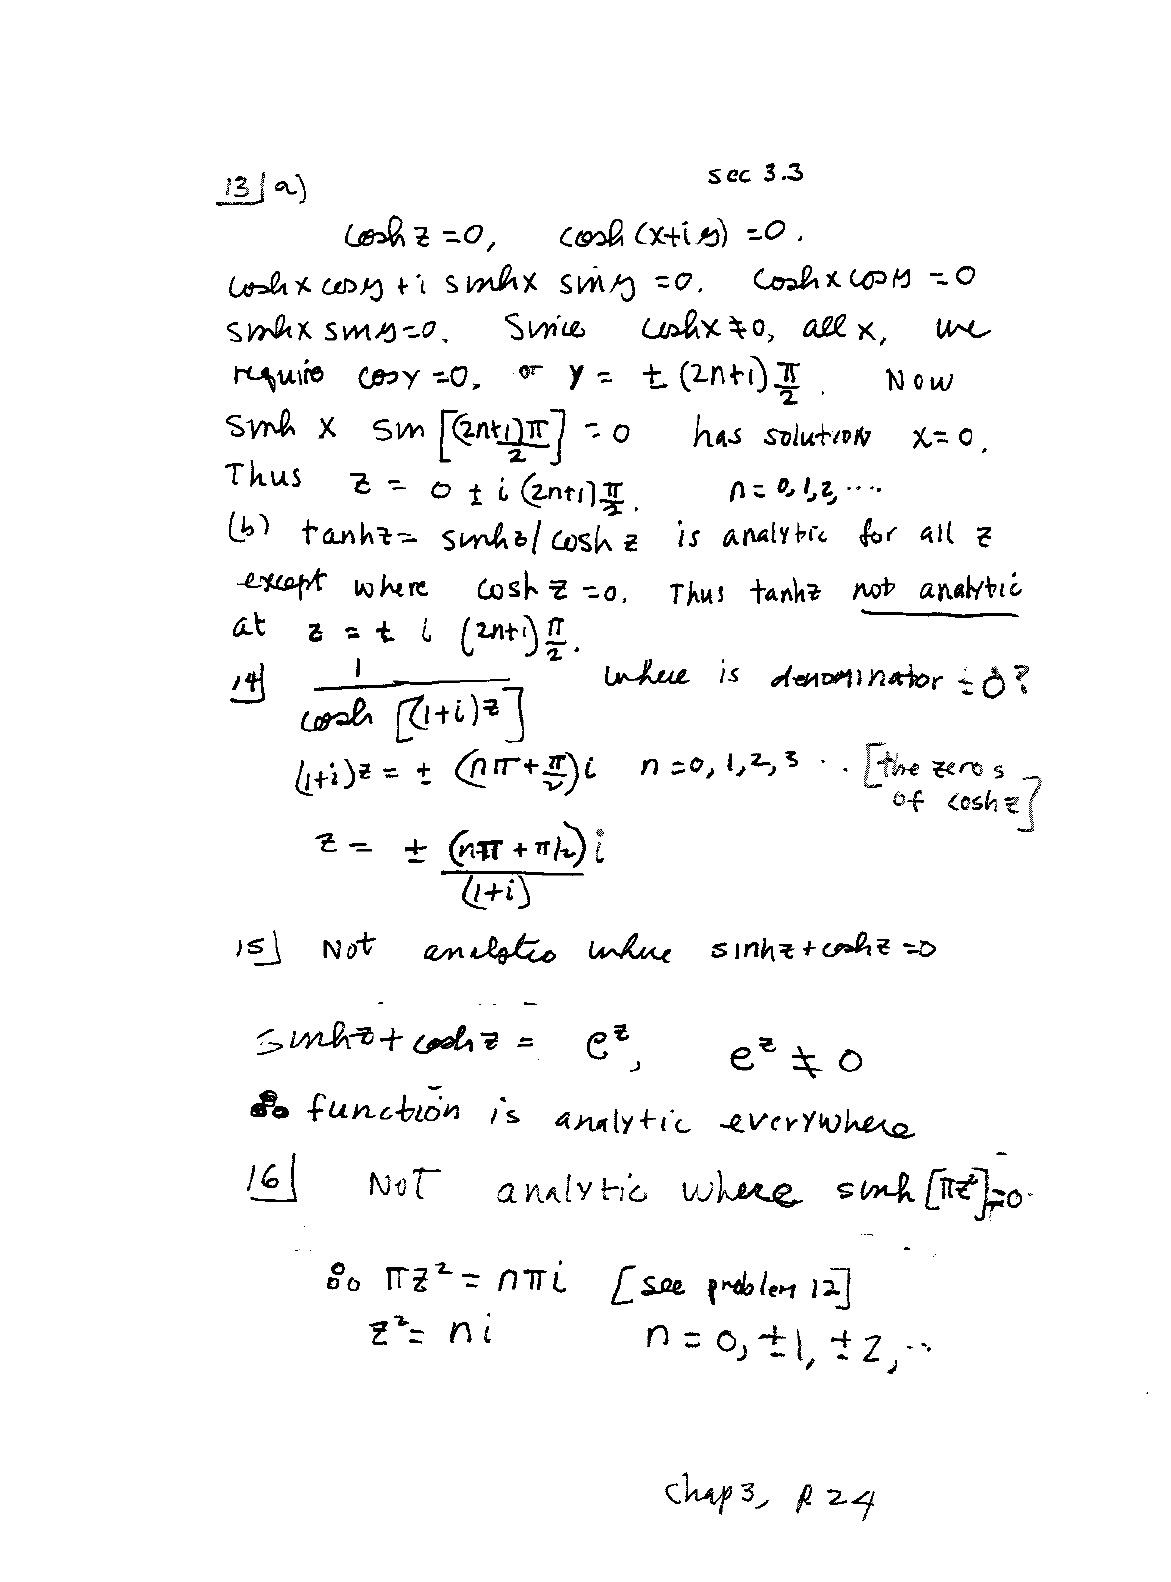 sec 3.3
13] a)
cosh z = 0, cosh (x+iy) = 0.
cosh x cos y + i sinh x sin y = 0. cosh x cos y = 0
sinh x sin y = 0. Since cosh x ≠ 0, all x, we
require cos y = 0, or y = ± (2n+1) π/2. Now
sinh x sin [(2n+1)π/2] = 0 has solution x = 0.
Thus z = 0 ± i (2n+1) π/2. n = 0, 1, 2, ....
(b) tanh z = sinh z / cosh z is analytic for all z
except where cosh z = 0. Thus tanh z not analytic
at z = ± i (2n+1) π/2.
14] 1/cosh [(1+i)z] where is denominator = 0?
(1+i)z = ± (nπ + π/2) i n = 0, 1, 2, 3 .. [the zeros
of cosh z]
z = ± (nπ + π/2) i/(1+i)
15] Not analytic where sinh z + cosh z = 0
sinh z + cosh z = e^z, e^z ≠ 0
∴ function is analytic everywhere
16] Not analytic where sinh [πz²] = 0.
∴ πz² = nπi [see problem 12]
z² = ni n = 0, ±1, ±2, ..
chap 3, p 24